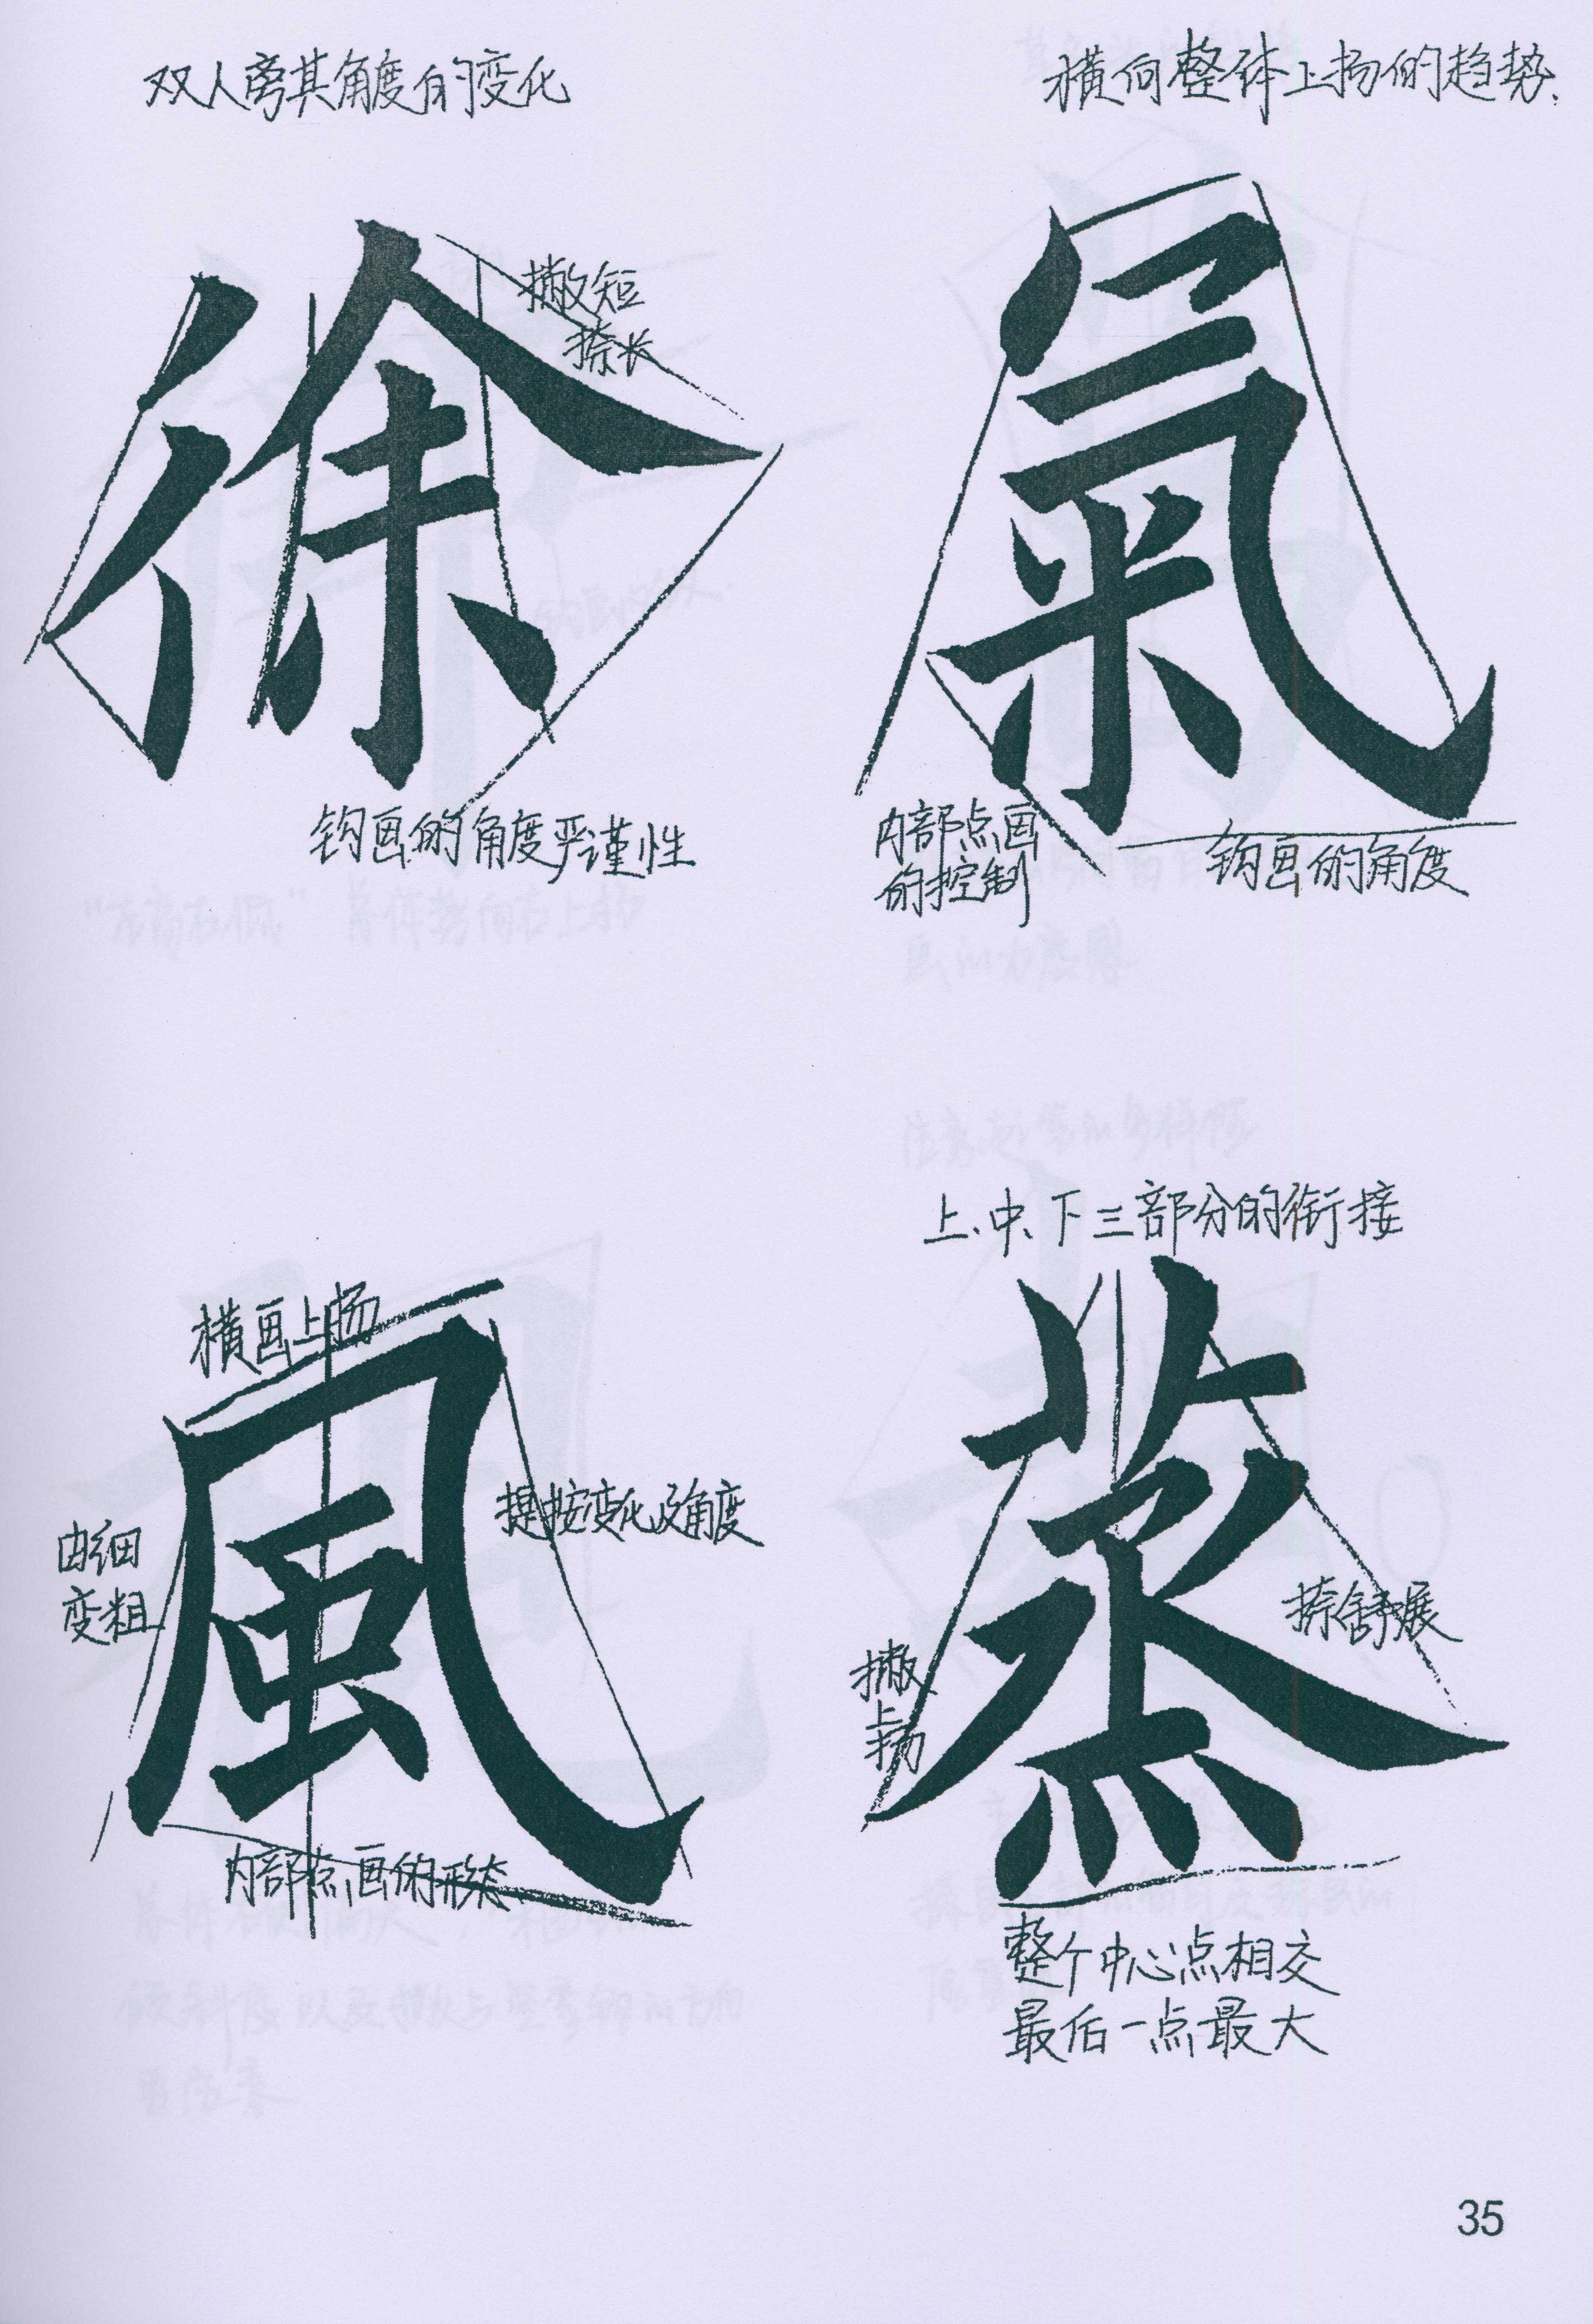 双人旁其角度的变化
徐
撇短
捺长
钩画的角度严谨性
横向整体上扬的趋势
氣
内部点画
的控制
钩画的角度
横画上扬
風
由细
变粗
提按变化及角度
内部点画的形态
上、中、下三部分的衔接
蒸
撇
上扬
捺舒展
整个中心点相交
最后一点最大
35